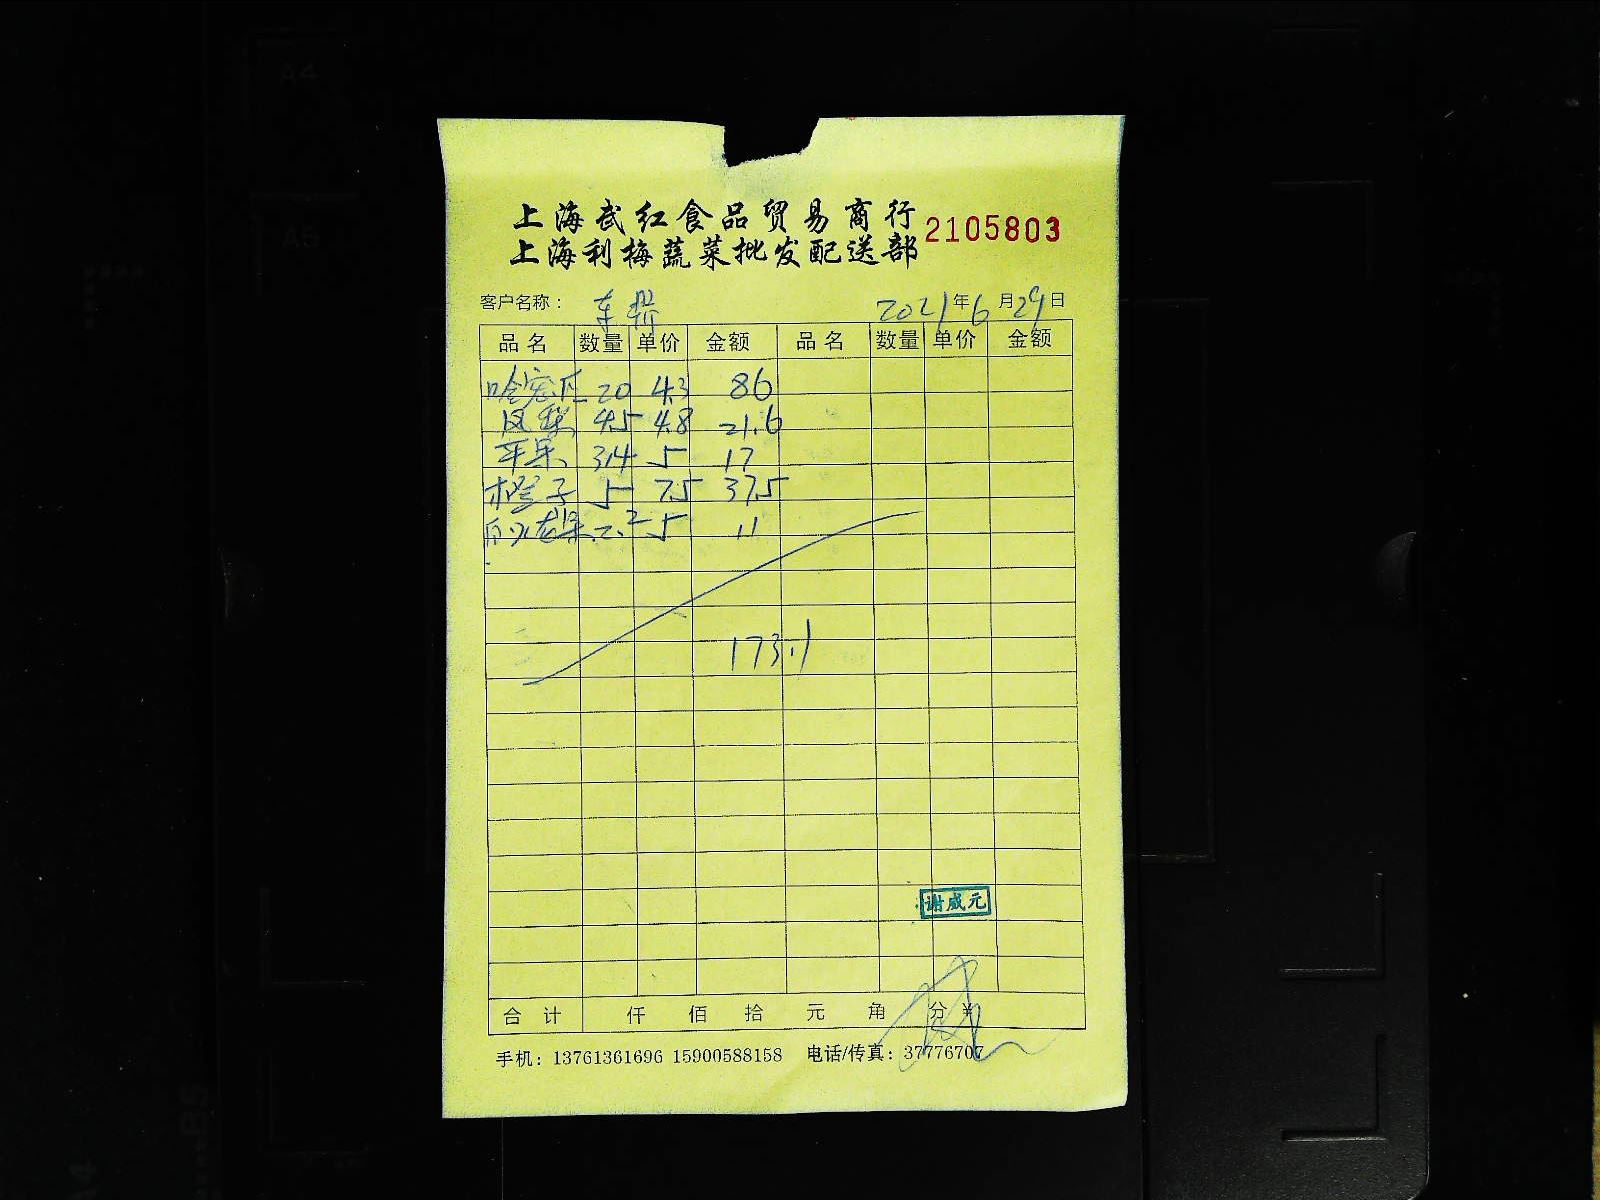 上海武红食品贸易商行
上海利梅蔬菜批发配送部 2105803
客户名称： 东 2021年6月29日
品名 数量 单价 金额 品名 数量 单价 金额
哈密瓜 20 4.3 86
凤梨 4.5 4.8 21.6
苹果 3.4 5 17
橙子 5 7.5 37.5
白火龙果 2.2 5 11
173.1
谢咸元
合计 仟 佰 拾 元 角 分 ¥
手机：13761361696 15900588158 电话/传真：37776707
A4
A5